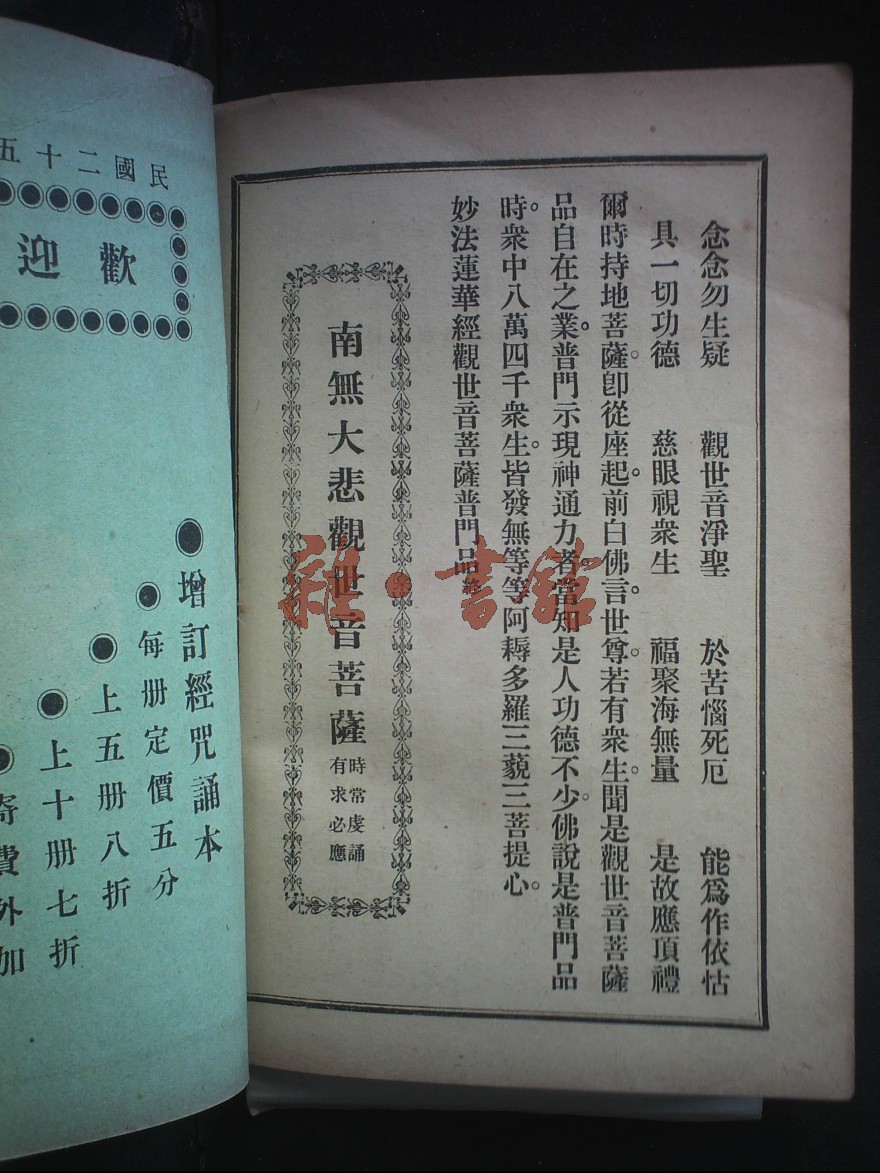 念念勿生疑　觀世音淨聖　於苦惱死厄　能爲作依怙
具一切功德　慈眼視衆生　福聚海無量　是故應頂禮
爾時持地菩薩。卽從座起。前白佛言。世尊。若有衆生。聞是觀世音菩薩
品自在之業。普門示現神通力者。當知是人功德不少。佛說是普門品
時。衆中八萬四千衆生。皆發無等等阿耨多羅三藐三菩提心。
妙法蓮華經觀世音菩薩普門品終
南無大悲觀世音菩薩
時常虔誦
有求必應
民國二十五
歡迎
●增訂經咒誦本
●每册定價五分
●上五册八折
●上十册七折
●寄費外加
雜·書館